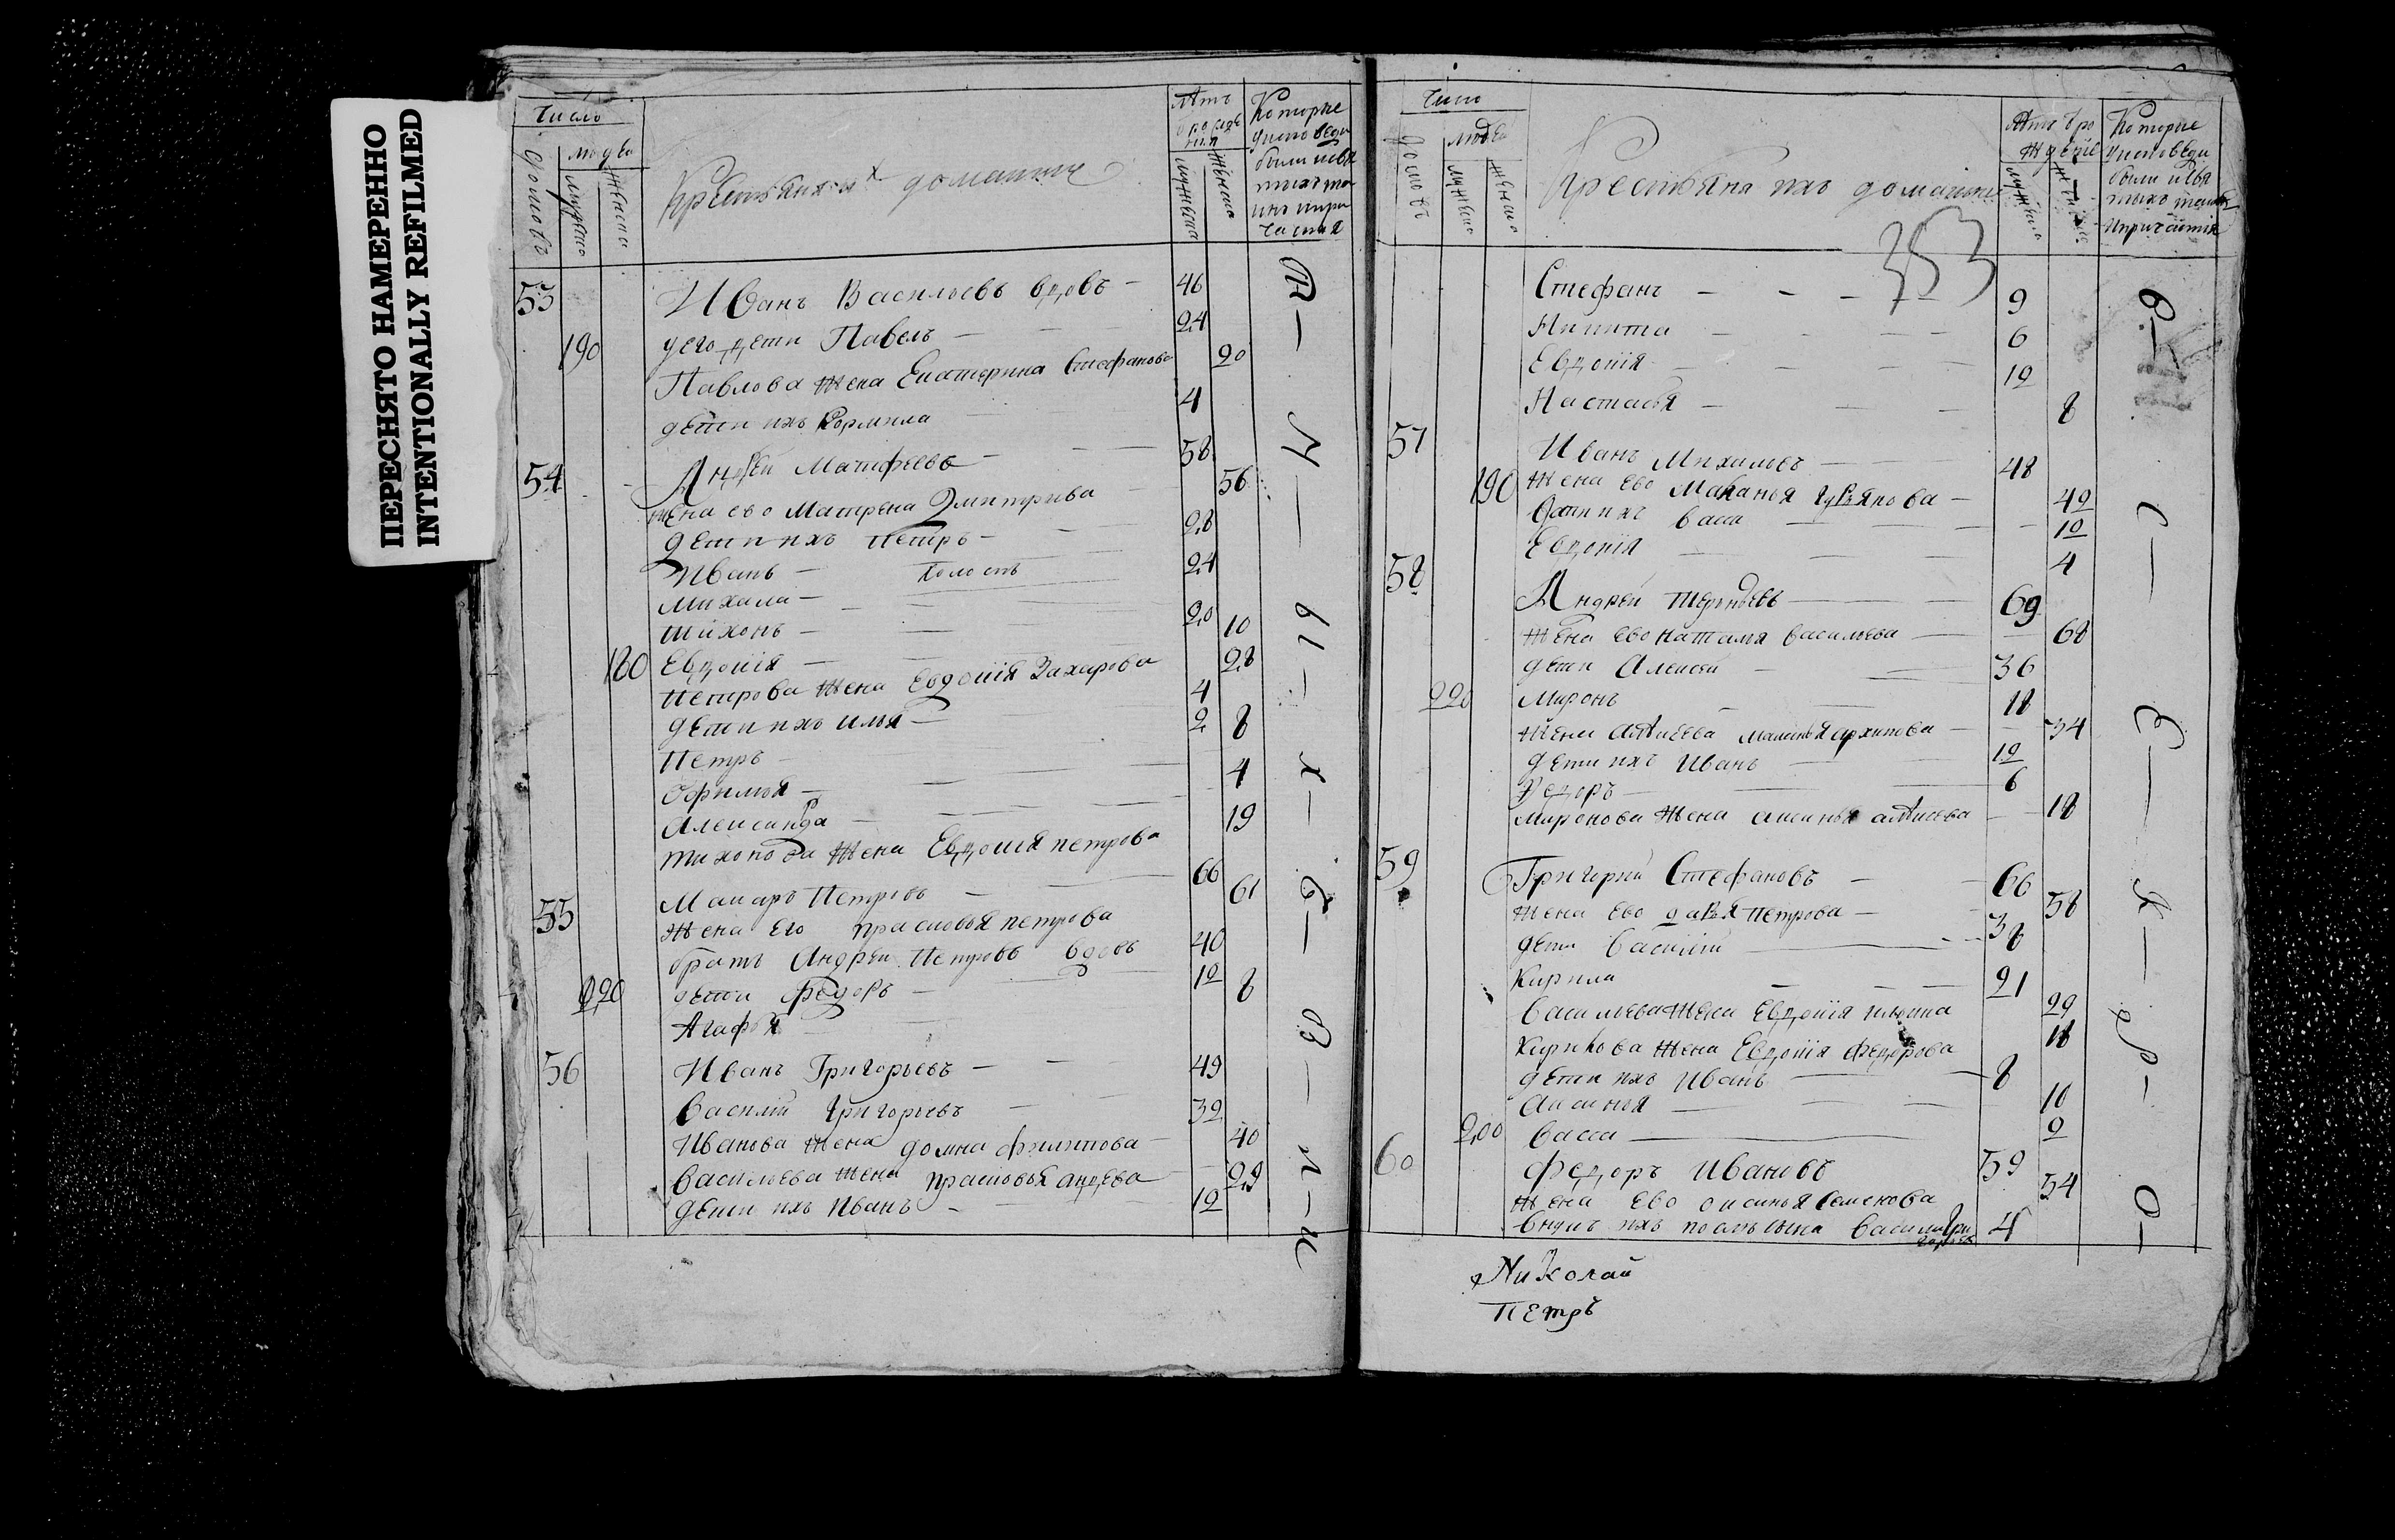 ПЕРЕСНЯТО НАМЕРЕННО
INTENTIONALLY REFILMED
Число
домовъ
людей
мужеска
женска
Крестьяня ихъ домашние
Лѣтъ
мужеска
женска
Которые
у исповеди
были и свя
тыхъ та
инъ при
частия
53
Иванъ Васильевъ вдовъ 46
190 у его дети Павелъ 24
Павлова жена Екатерина Стефанова 20
дети ихъ Кормила 4
54 Андрей Матфеевъ 58
жена ево Матрена Дмитрива 56
дети ихъ Петръ 28
Иванъ холостъ 24
Михаила
Тихонъ 20
180 Евдокия 10
Петрова жена Евдокия Захарова 28
дети ихъ Илья 4
Петръ 2
Офимья 8
Александра 4
Тихонова жена Евдокия петрова 19
55 Макаръ Петровъ 66
жена его прасковья петрова 61
братъ Андреи Петровъ вдовъ 40
220 дети Федоръ 12
Агафья 8
56 Иванъ Григорьевъ 49
Василии Григорьевъ 39
Иванова жена домна филипова 40
Васильева жена прасковья андрева 29
дети ихъ Иванъ 12
Число
домовъ
людей
мужеска
женска
Крестьяня ихъ домашние
353
Лѣтъ отро
ждение
мужеска
Которые
у исповеди
были и свя
тыхъ таинъ
и причастия
Стефанъ 9
Никита 6
Евдокия 12
Настасья 8
57 Иванъ Михаловъ 48
190 жена ево Маланья Гурьянова 42
дети ихъ васа 12
Евдокия 4
58 Андрей Терентьевъ 69
жена ево Наталья васильева 68
дети Алексей 36
220 Миронъ 18
жена алексеева маланья архипова 34
дети ихъ Иванъ 12
Федоръ 6
Миронова жена аксинья алексева 18
59 Григории Стефановъ 66
жена ево дарья петрова 58
дети василии 38
Кирила 21
васильева жена евдокия ильина 29
Кирилова жена Евдокия Федорова 18
дети ихъ Иванъ 8
аксинья 10
200 васса 2
60 Федоръ Ивановъ 59
жена ево оксинья семенова 54
внукъ ихъ послѣ сына василии Гри
горьев 4
Николай
Петръ